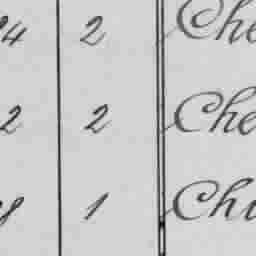 24 2 Che
2 2 Che
8 1 Chi